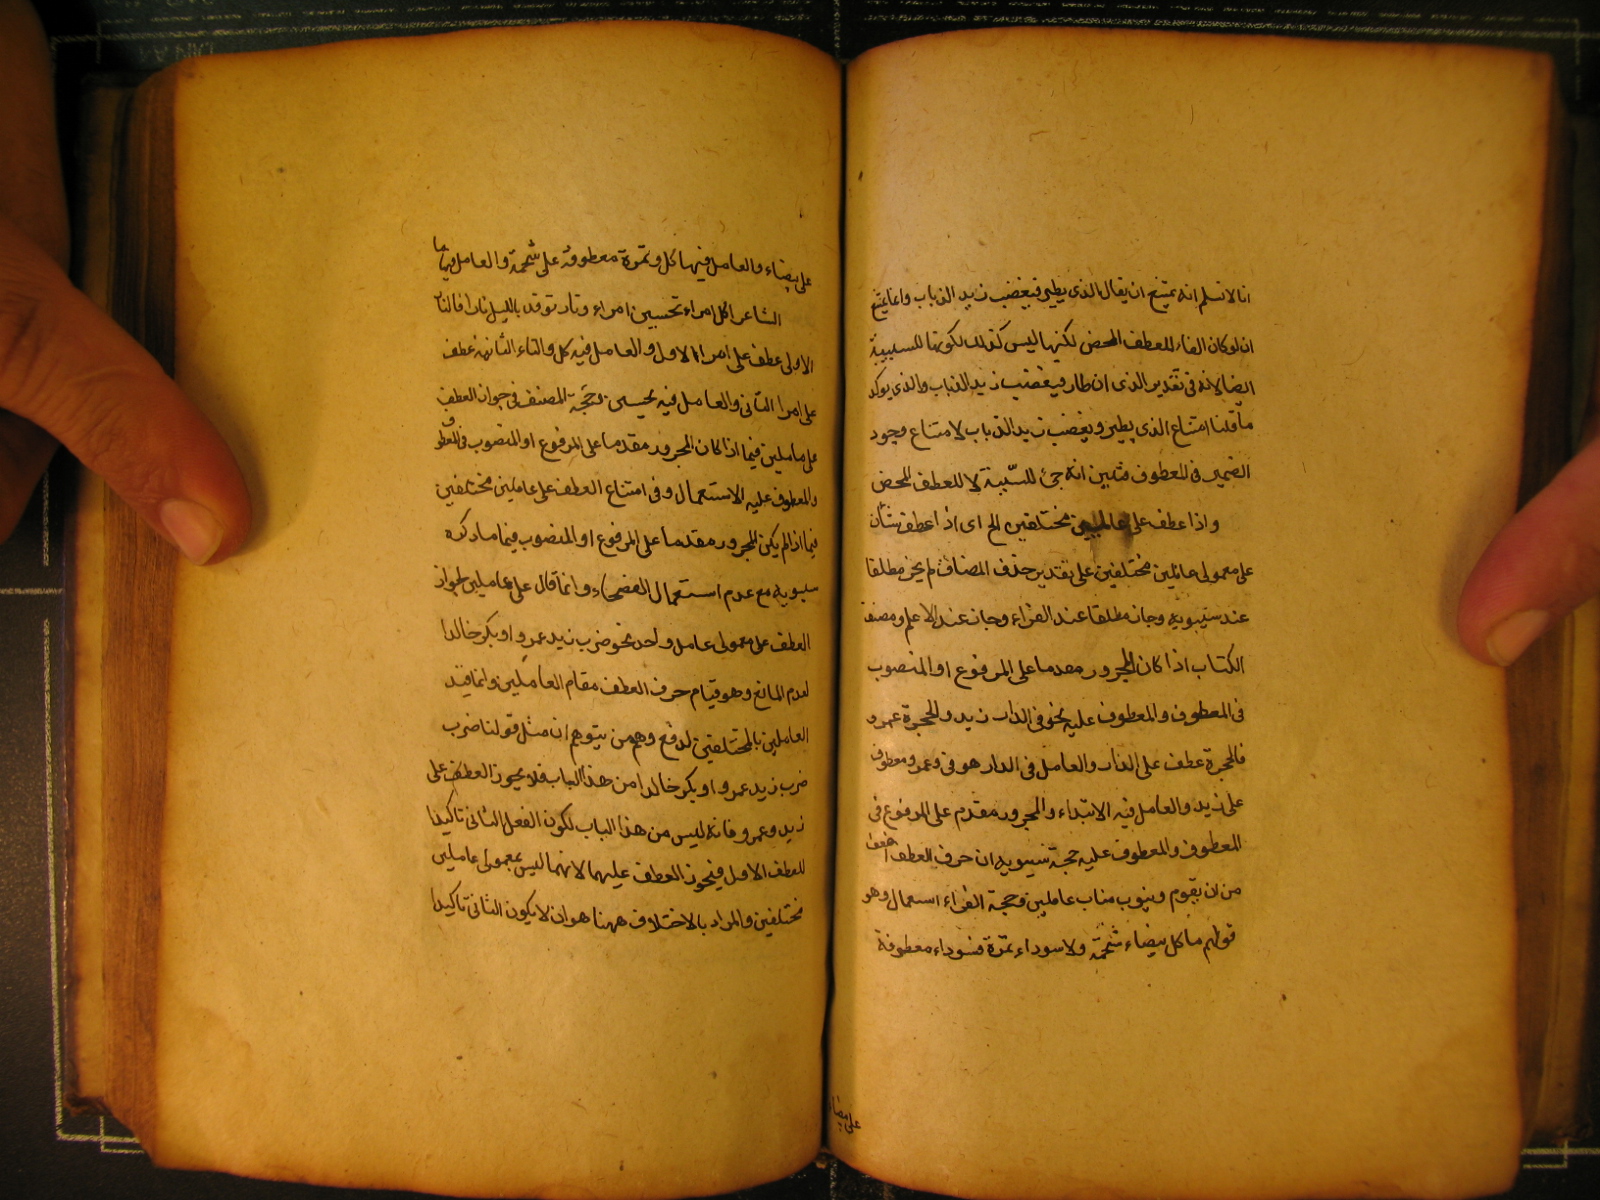 انا لا نسلم انه يمتنع ان يقال الذى يطير فيغضب زيد الذباب وانما يمتنع
ان لو كان الفاء للعطف المحض لكنها ليس كذلك لكونها للسببية
ايضا لانه فى تقدير الذى ان طار فيغضب زيد الذباب والذى يوكد
ما قلنا امتناع الذى يطير ويغضب زيد الذباب لامتناع وجود
الضمير فى المعطوف فتبين انه جئ للسّببية لا للعطف المحض
واذا عطف على عاملين مختلفين الخ اى اذا عطف شئان
على معمولى عاملين مختلفين على تقدير حذف المضاف لم يجز مطلقا
عند سيبويه وجاز مطلقا عند الفراء وجاز عند الاعلم ومصنف
الكتاب اذا كان المجرور مقدما على المرفوع او المنصوب
فى المعطوف والمعطوف عليه نحو فى الدار زيد والحجرة عمرو
فالحجرة عطف على الدار والعامل فى الدار هو فى وعمرو معطوف
على زيد والعامل فيه الابتداء والمجرور مقدم على المرفوع فى
المعطوف والمعطوف عليه حجة سيبويه ان حرف العطف اضعف
من ان يقوم وينوب مناب عاملين وحجة الفراء استعمال وهو
قولهم ما كل بيضاء شحمة ولا سوداء تمرة فسوداء معطوفة
على بيضاء
على بيضاء والعامل فيها كل وتمرة معطوفة على شحمة والعامل فيها ما
الشاعر اكل امراء تحسبين امراء ونار توقد بالليل نارا فالنا
الاولى عطف على امرا الاول والعامل فيه كل والناء الثانية عطف
على امرا الثانى والعامل فيه تحسبين وحجة المصنف فى جواز العطف
على عاملين فيما اذا كان المجرور مقدما على المرفوع او المنصوب فى المعطوف
والمعطوف عليه الاستعمال وفى امتناع العطف على عاملين مختلفين
فيما اذا لم يكن المجرور مقدما على المرفوع او المنصوب فيما ما ذكره
سيبويه مع عدم استعمال الفصحاء وانما قال على عاملين لجواز
العطف على معمولى عامل واحد نحو ضرب زيد عمروا وبكر خالدا
لعدم المانع وهو قيام حرف العطف مقام العاملين وانما قيد
العاملين بالمختلفين لدفع وهم من يتوهم ان مثل قولنا ضرب
ضرب زيد عمروا وبكر خالدا من هذا الباب فلا يجوز العطف على
زيد وعمرو فانه ليس من هذا الباب لكون الفعل الثانى تاكيدا
للعطف الاول فيجوز العطف عليهما لانهما ليس بمعمولى عاملين
مختلفين والمراد بالاختلاف ههنا هو ان لا يكون الثانى تاكيدا